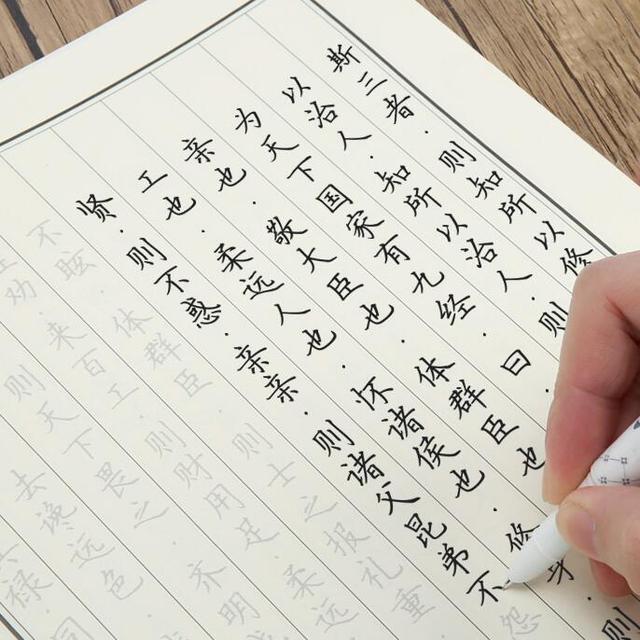 斯三者·则知所以修
以治人·知所以治人·则
为天下国家有九经·曰·
亲也·敬大臣也·体群臣也
工也·柔远人也·怀诸侯也·修身 则
贤·则不惑·亲亲·则诸父昆弟不怨
不眩·体群臣·则士之报礼重
劝·来百工·则财用足·柔远
则天下畏之·齐明
去谗远色
禄·同